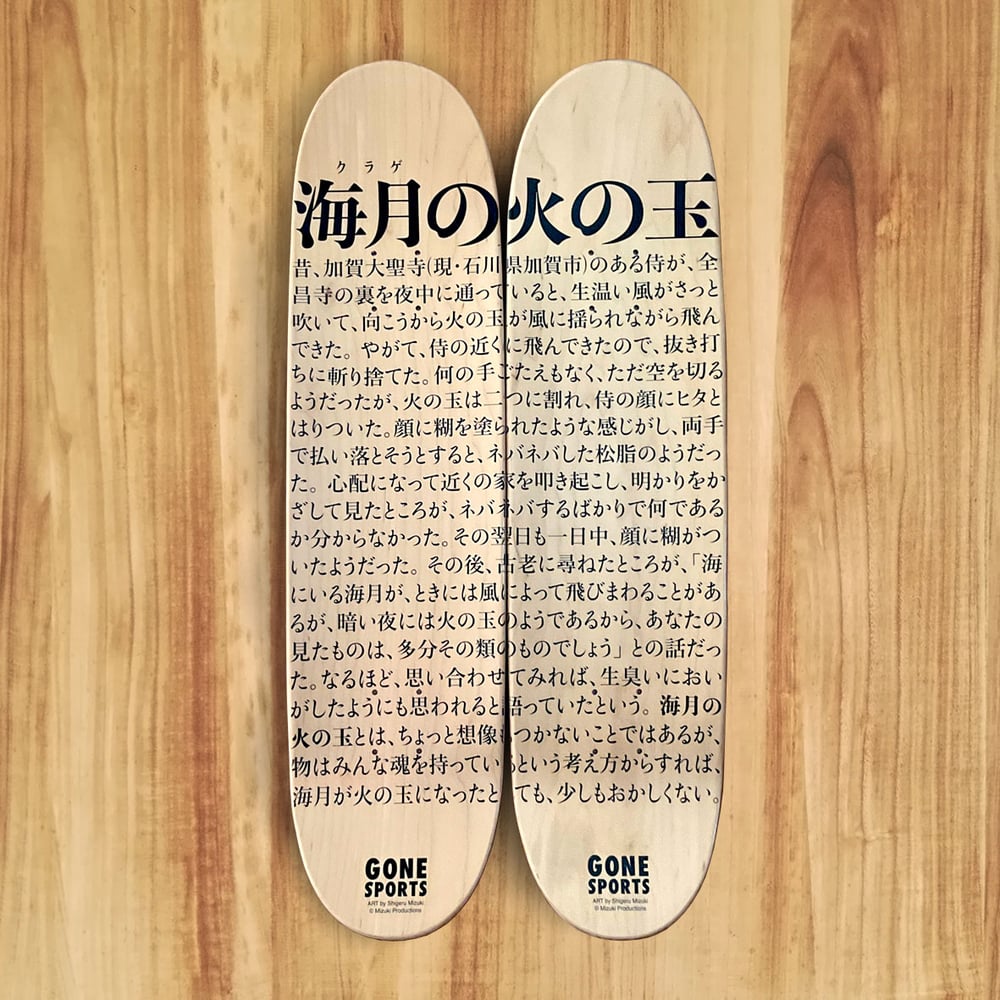 クラゲ
海月の火の玉
昔、加賀大聖寺(現・石川県加賀市)のある侍が、全
昌寺の裏を夜中に通っていると、生温い風がさっと
吹いて、向こうから火の玉が風に揺られながら飛ん
できた。やがて、侍の近くに飛んできたので、抜き打
ちに斬り捨てた。何の手ごたえもなく、ただ空を切る
ようだったが、火の玉は二つに割れ、侍の顔にヒタと
はりついた。顔に糊を塗られたような感じがし、両手
で払い落とそうとすると、ネバネバした松脂のようだっ
た。心配になって近くの家を叩き起こし、明かりをか
ざして見たところが、ネバネバするばかりで何である
か分からなかった。その翌日も一日中、顔に糊がつ
いたようだった。その後、古老に尋ねたところが、「海
にいる海月が、ときには風によって飛びまわることがあ
るが、暗い夜には火の玉のようであるから、あなたの
見たものは、多分その類のものでしょう」との話だっ
た。なるほど、思い合わせてみれば、生臭いにおい
がしたようにも思われると語っていたという。海月の
火の玉とは、ちょっと想像もつかないことではあるが、
物はみんな魂を持っているという考え方からすれば、
海月が火の玉になったとしても、少しもおかしくない。
GONE
SPORTS
ART by Shigeru Mizuki
© Mizuki Productions
GONE
SPORTS
ART by Shigeru Mizuki
© Mizuki Productions